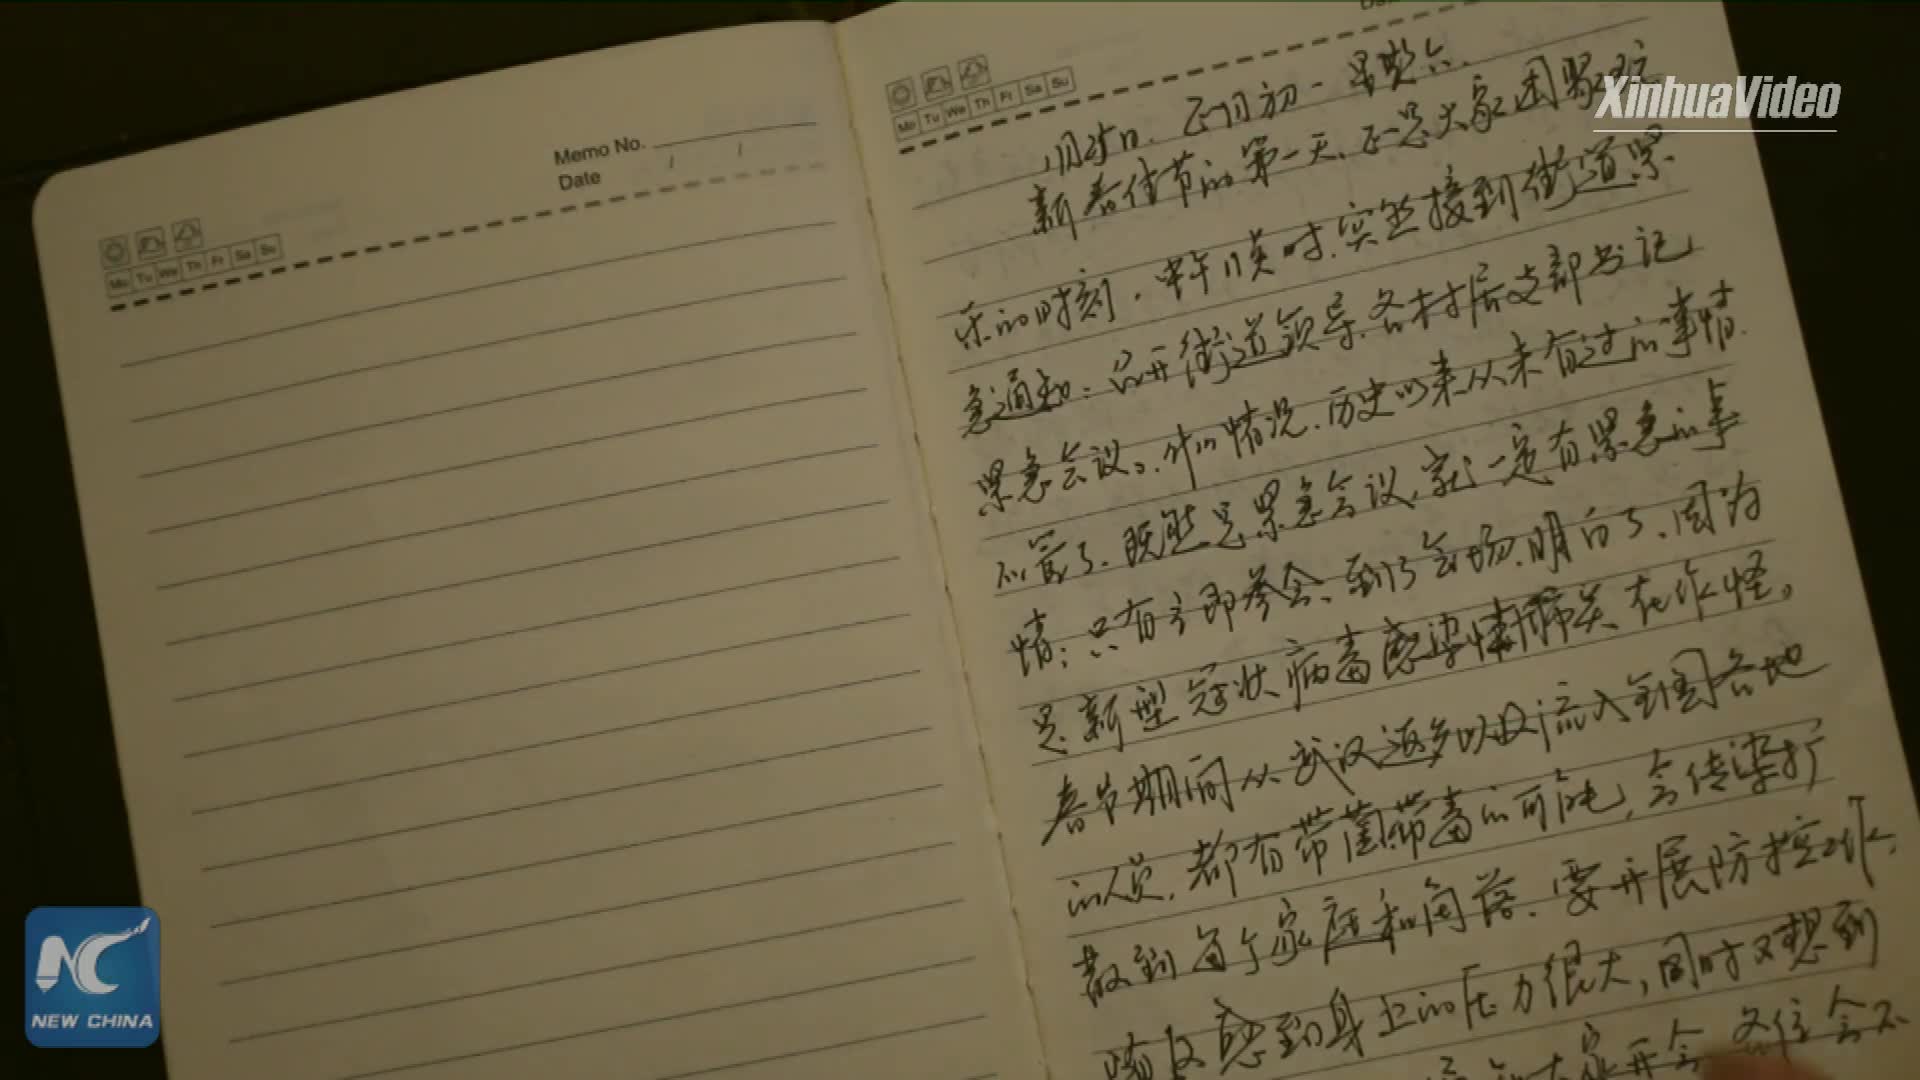 XinhuaVideo
Memo No.
Date / /
Mo Tu We Th Fr Sa Su
Mo Tu We Th Fr Sa Su
1月25日. 正月初一 星期六.
新春佳节的第一天, 正是大家团聚欢
乐的时刻, 中午1点时, 突然接到街道紧
急通知: 召开街道领导、各村居支部书记
紧急会议。情况, 历史以来从未有过的事情.
不管了, 既然是紧急会议, 就一定有紧急的事
情; 只有立即参会、到了会场, 明白了, 因为
是新型冠状病毒感染肺炎在作怪。
春节期间从武汉返乡以及流入全国各地
的人员, 都有带菌带毒的可能, 会传染扩
散到每个家庭和角落, 要开展防控工作,
感到身上的压力很大, 同时又想到
大家开会, 各位会不
NEW CHINA